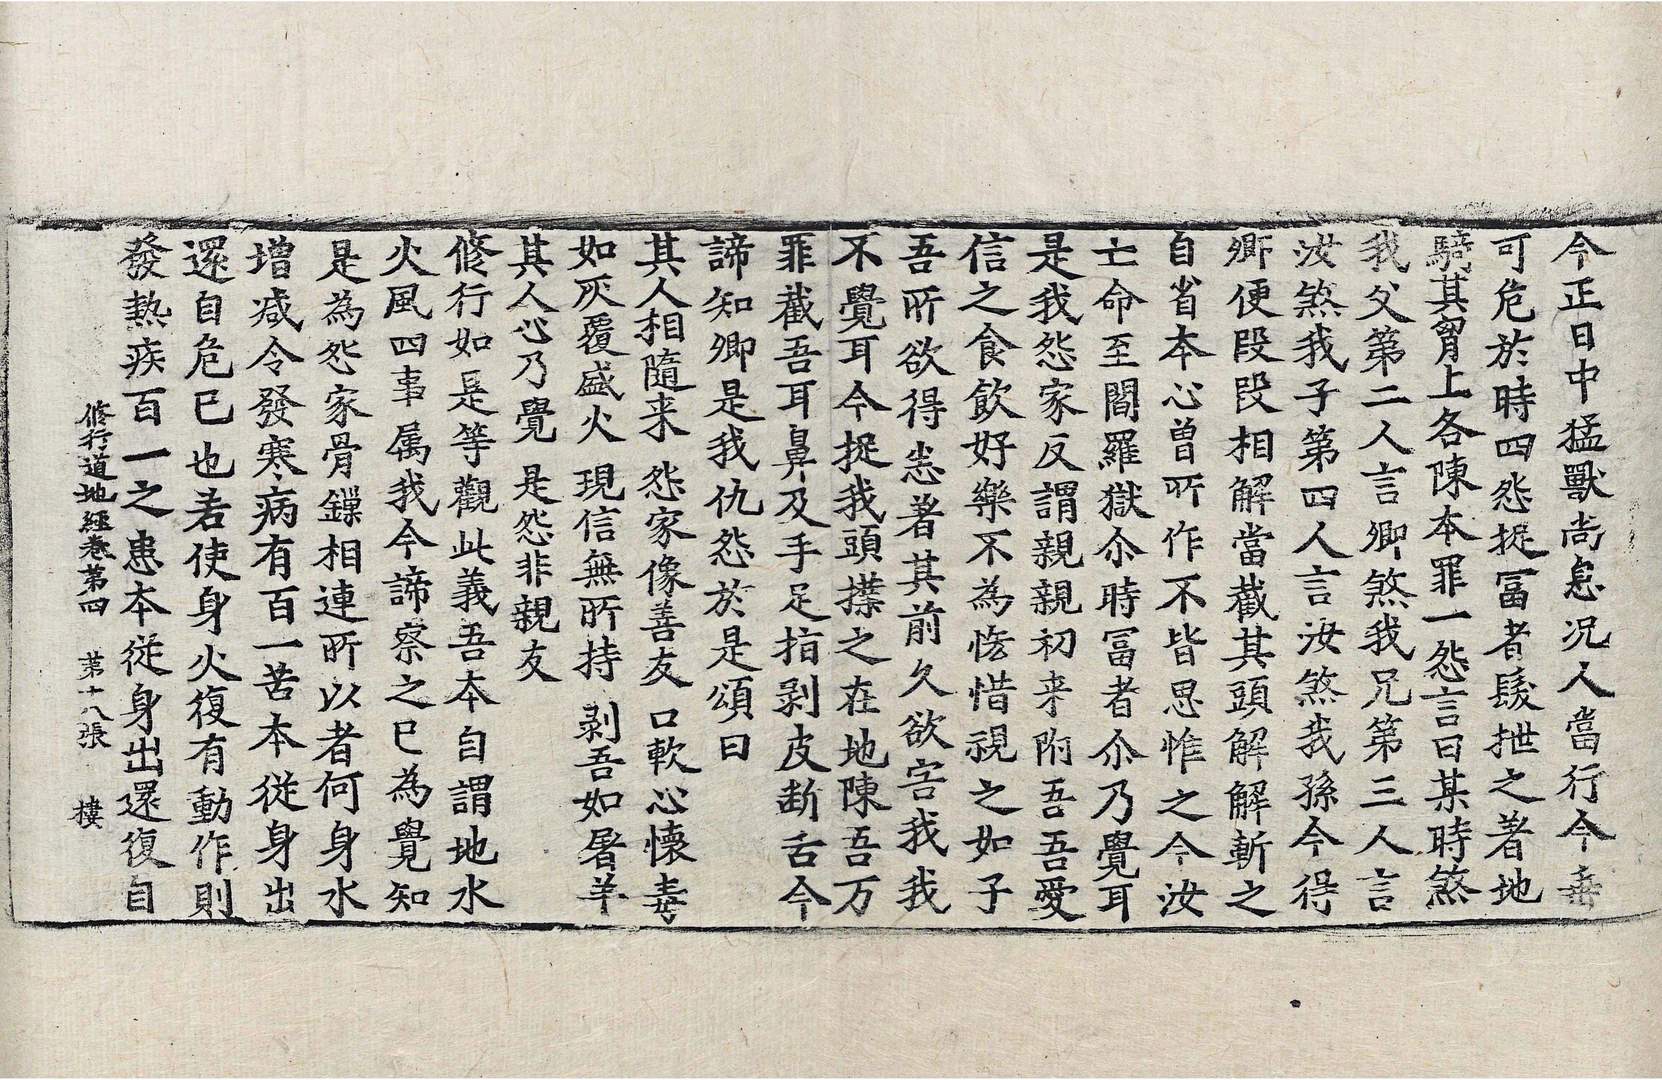 今正日中猛獸尚怠况人當行今毒
可危於時四怨捉冨者髮拽之著地
騎其胷上各陳本罪一怨言曰某時煞
我父第二人言卿煞我兄第三人言
汝煞我子第四人言汝煞我孫今得
卿便段段相解當截其頭解解斬之
自省本心曽所作不皆思惟之今汝
亡命至閻羅獄尒時冨者尒乃覺耳
是我怨家反謂親親初来附吾吾愛
信之食飲好樂不為悋惜視之如子
吾所欲得恣著其前久欲害我我
不覺耳今捉我頭擛之在地陳吾万
罪截吾耳鼻及手足指剥皮斷舌今
諦知卿是我仇怨於是頌曰
其人相隨来 怨家像善友 口軟心懷毒
如灰覆盛火 現信無所持 剥吾如屠羊
其人心乃覺 是怨非親友
修行如是等觀此義吾本自謂地水
火風四事属我今諦察之已為覺知
是為怨家骨鏁相連所以者何身水
增减令發寒病有百一苦本從身出
還自危已也若使身火復有動作則
發熱疾百一之患本從身出還復自
修行道地經卷第四 第十八張 樓